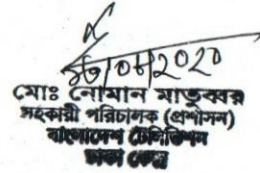 ১৬/০৮/2020
মোঃ নোমান মাতুব্বর
সহকারী পরিচালক (প্রশাসন)
বাংলাদেশ টেলিভিশন
ঢাকা কেন্দ্র